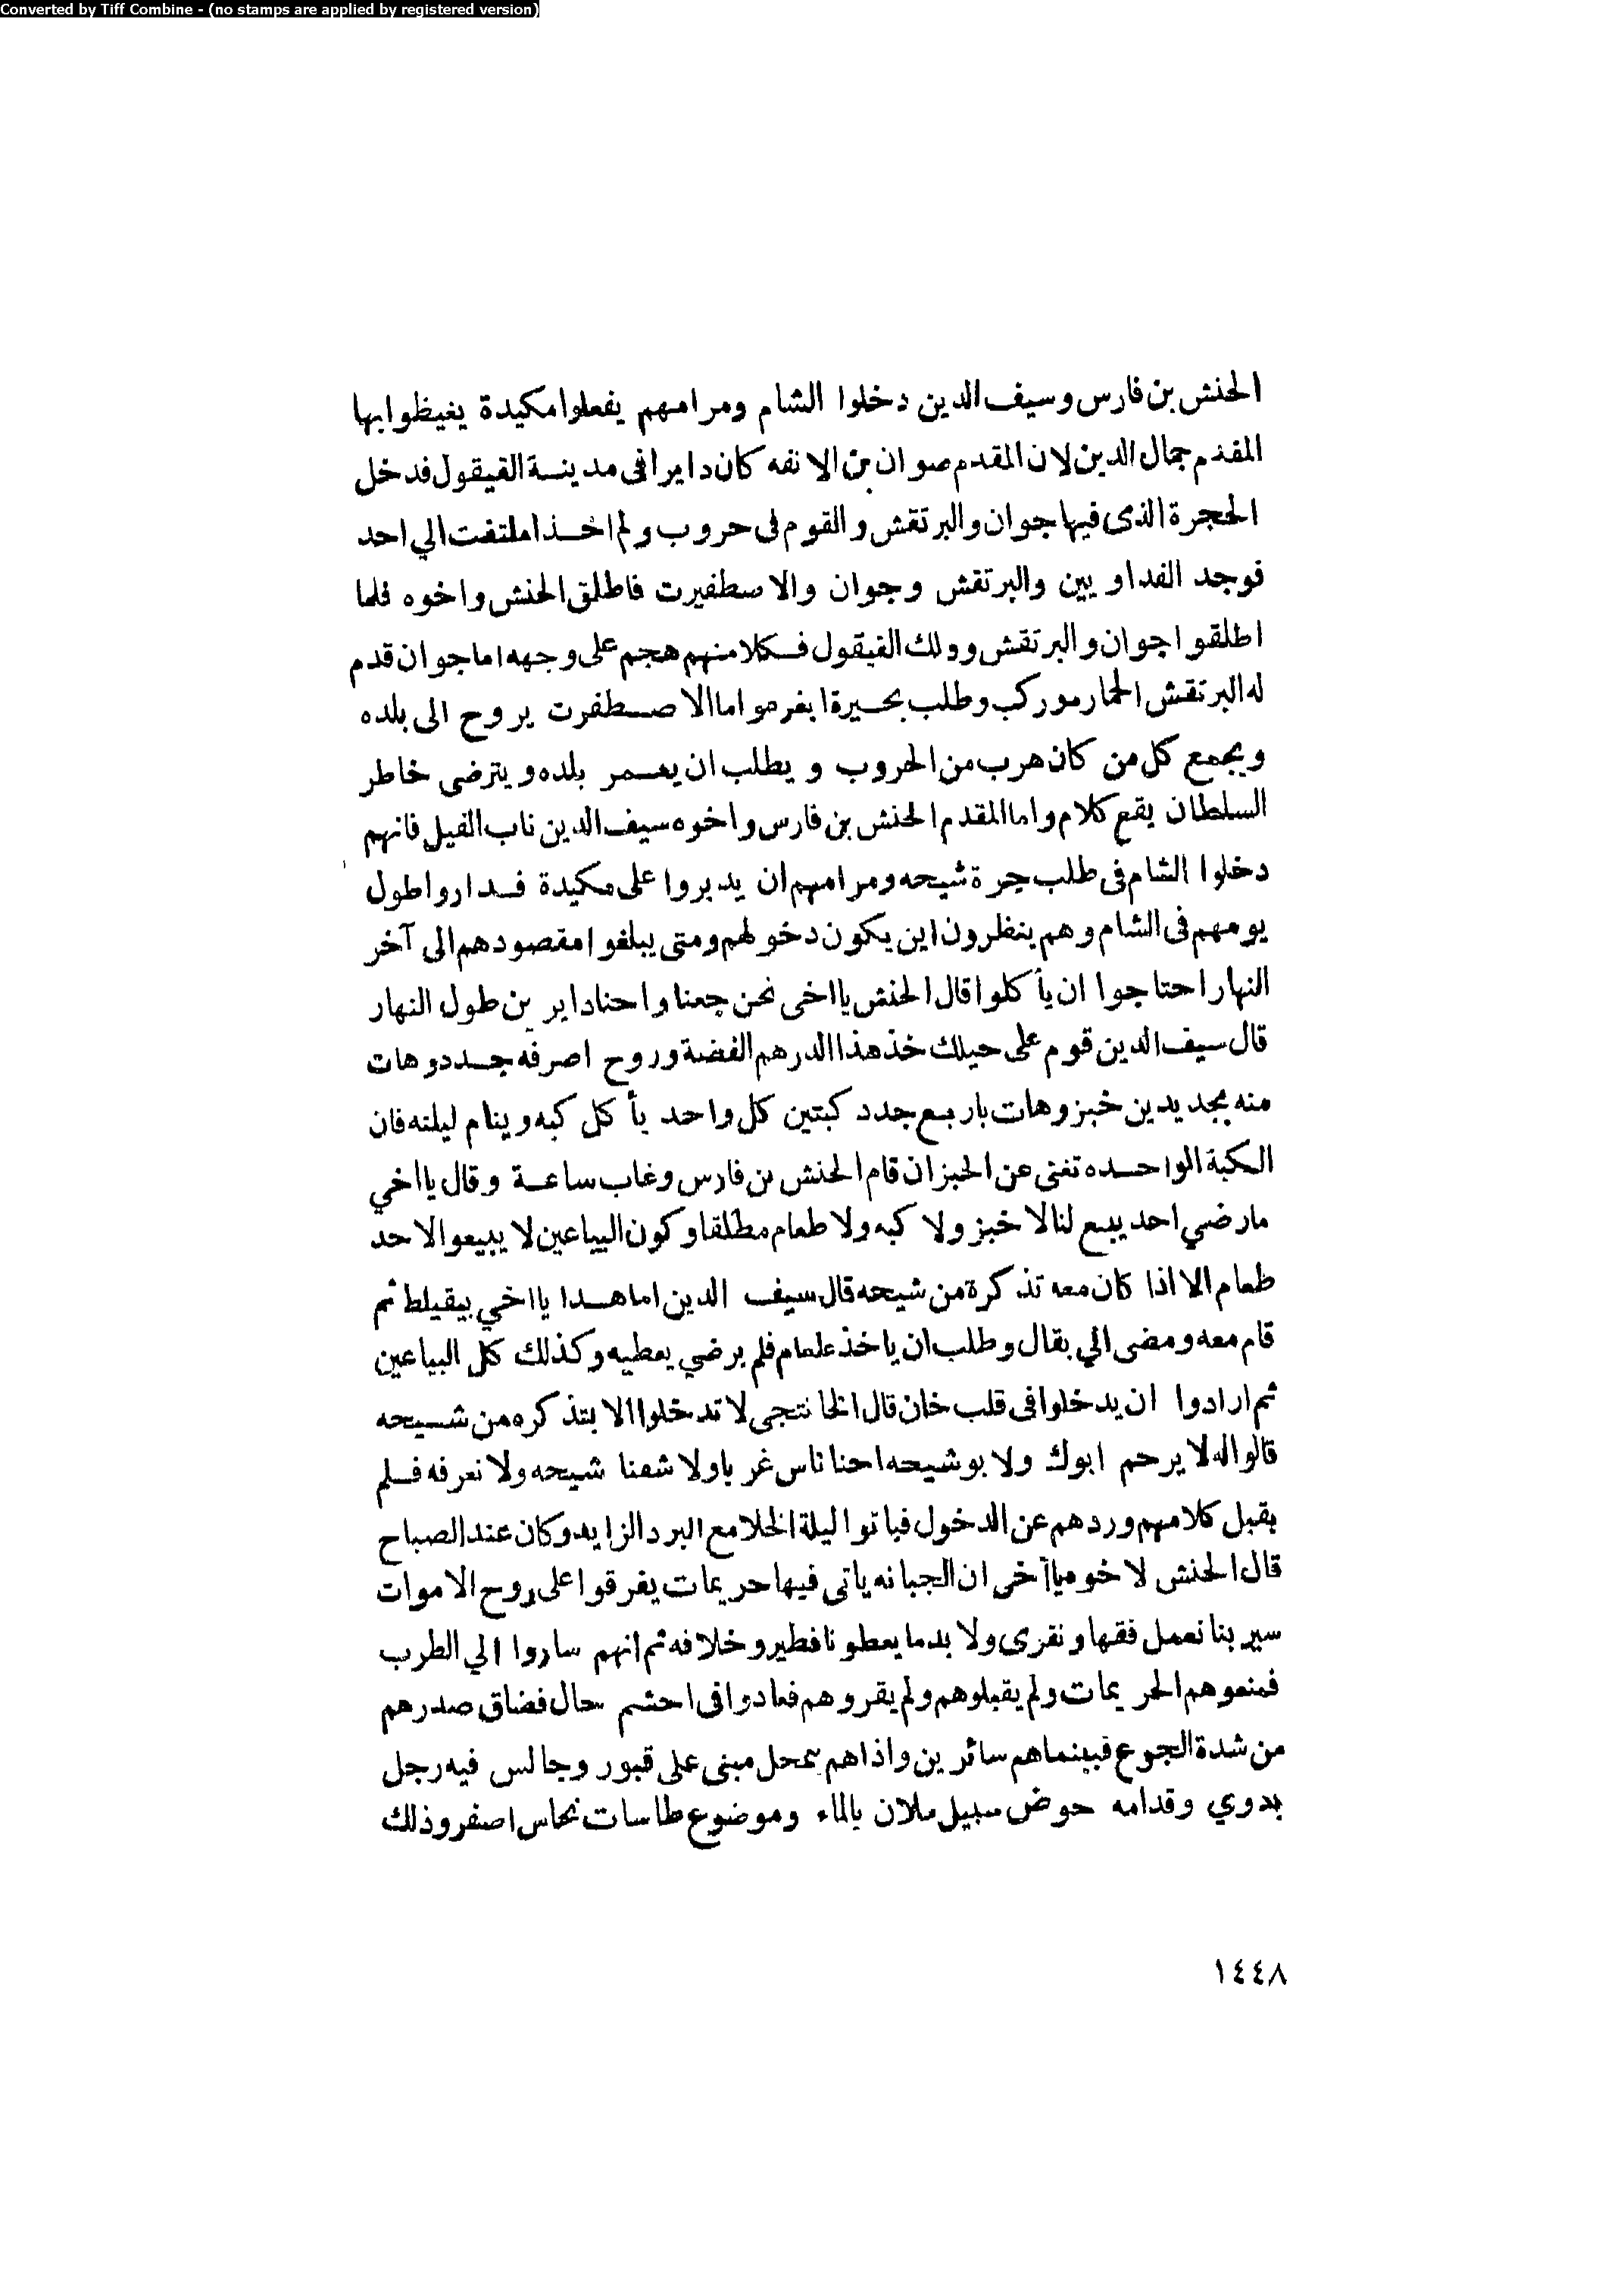 Converted by Tiff Combine - (no stamps are applied by registered version)
الحنش بن فارس وسيف الدين دخلوا الشام ومرامهم يفعلوا مكيدة يغيظوا بها
المقدم جمال الدين لان المقدم صوان بن الانفه كان دايرا فى مدينة الفيقول فدخل
الحجرة الذى فيها جوان والبرتقش والقوم فى حروب ولم اخذا ملتفت الي احد
فوجد الفداويين والبرتقش وجوان والاصطفيرت فاطلق الحنش واخوه فلما
اطلقوا جوان والبرتقش وولك الفيقول فكلا منهم هجم على وجهه اما جوان قدم
له البرتقش الحمار وركب وطلب بحيرة ايغرمو اما الاصطفرت يروح الى بلده
ويجمع كل من كان هرب من الحروب ويطلب ان يعمر بلده ويترضى خاطر
السلطان يقع كلام واما المقدم الحنش بن فارس واخوه سيف الدين ناب الفيل فانهم
دخلوا الشام فى طلب جرة شيحه ومرامهم ان يدبروا على مكيدة فداروا طول
يومهم فى الشام وهم ينظرون اين يكون دخولهم ومتى يبلغوا مقصودهم الى آخر
النهار احتاجوا ان يأكلوا قال الحنش يا اخى نحن جعنا واحنا دايرين طول النهار
قال سيف الدين قوم على حيلك خذ هذا الدرهم الفضة وروح اصرفه جدد وهات
منه بجديدين خبز وهات باربع جدد كبتين كل واحد يأكل كبه وينام ليلته فان
الكبة الواحده تغنى عن الخبز ان قام الحنش بن فارس وغاب ساعة وقال يا اخي
مارضي احد يبيع لنا لا خبز ولا كبه ولا طعام مطلقا وكون البياعين لا يبيعوا لاحد
طعام الا اذا كان معه تذكرة من شيحه قال سيف الدين اما هدا يا اخي بيقيلط ثم
قام معه ومضى الي بقال وطلب ان ياخذ طعام فلم يرضي يعطيه وكذلك كل البياعين
ثم ارادوا ان يدخلوا فى قلب خان قال الخانتجى لا تدخلوا الا بتذكره من شيحه
قالوا له لا يرحم ابوك ولا بو شيحه احنا ناس غربا ولا شفنا شيحه ولا نعرفه فلم
يقبل كلامهم وردهم عن الدخول فباتوا ليلة الخلا مع البرد الزايد وكان عند الصباح
قال الحنش لاخوه يا آخى ان الجبانه ياتى فيها حريمات يفرقوا على روح الاموات
سير بنا نعمل فقها ونقرى ولا بد ما يعطونا فطير وخلافه ثم انهم ساروا الي الطرب
فمنعوهم الحريمات ولم يقبلوهم ولم يقروهم فعادوا فى احشم حال فضاق صدرهم
من شدة الجوع فبينما هم سائرين واذا هم بمحل مبنى على قبور وجالس فيه رجل
بدوي وقدامه حوض سبيل ملان بالماء وموضوع طاسات نحاس اصفر وذلك
١٤٤٨